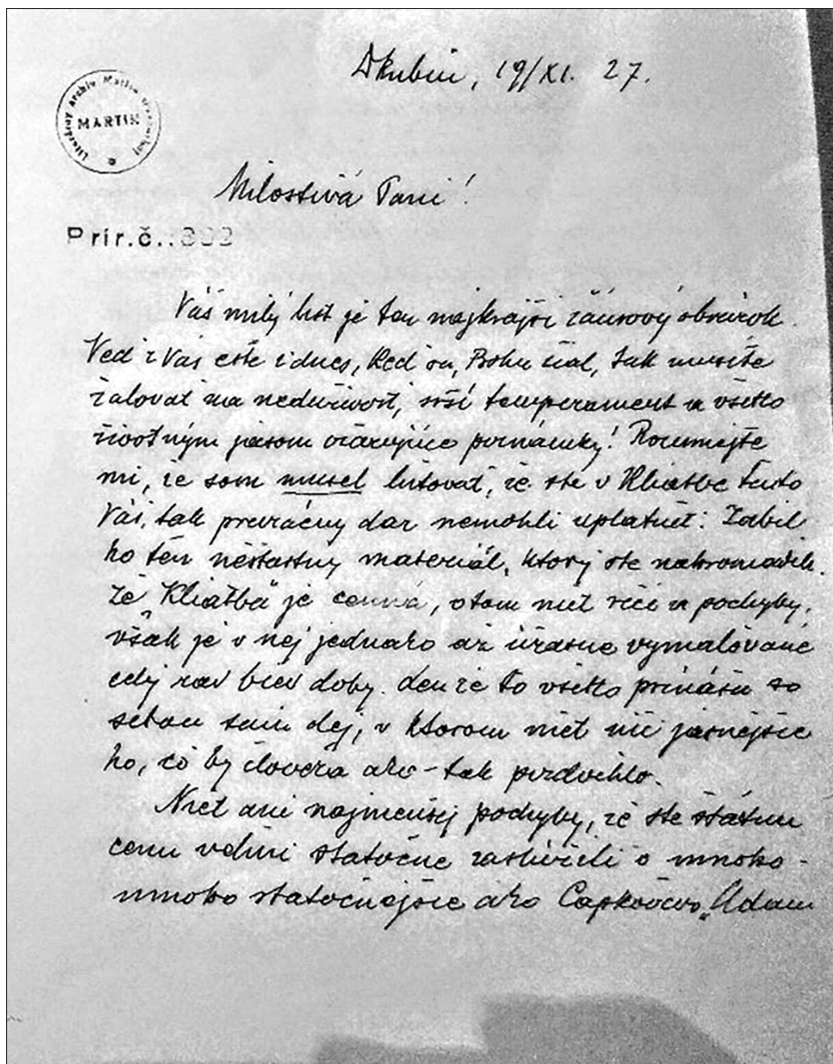 Dkubín, 19/XI. 27.
Literárny archív Matice slovenskej
MARTIN
Milostivá Pani!
Prír.č.:
Váš milý list je ten najkrajší žánrový obrázok.
Veď z Vás ešte i dnes, keď sa, Bohu žiaľ, tak musíte
žalovať na neduživosť, srší temperament a všetko
životným jasom ožarujúce poznámky! Rozumejte
mi, že som musel ľutovať, že ste v Kliatbe tento
Váš, tak prevzácny dar nemohli uplatniť. Zabil
ho ten nešťastný materiál, ktorý ste nahromadili.
Že „Kliatba" je cenná, o tom niet reči a pochyby,
však je v nej jednako až úžasne vymaľované
celý ráz tej doby. Len že to všetko prináša so
sebou sám dej, v ktorom niet nič jasnejšie
ho, čo by človeka ako-tak pozdvihlo.
Niet ani najmenšej pochyby, že ste štátnu
cenu veľmi statočne zaslúžili o mnoho-
mnoho statočnejšie ako Čapkovcov „Adam